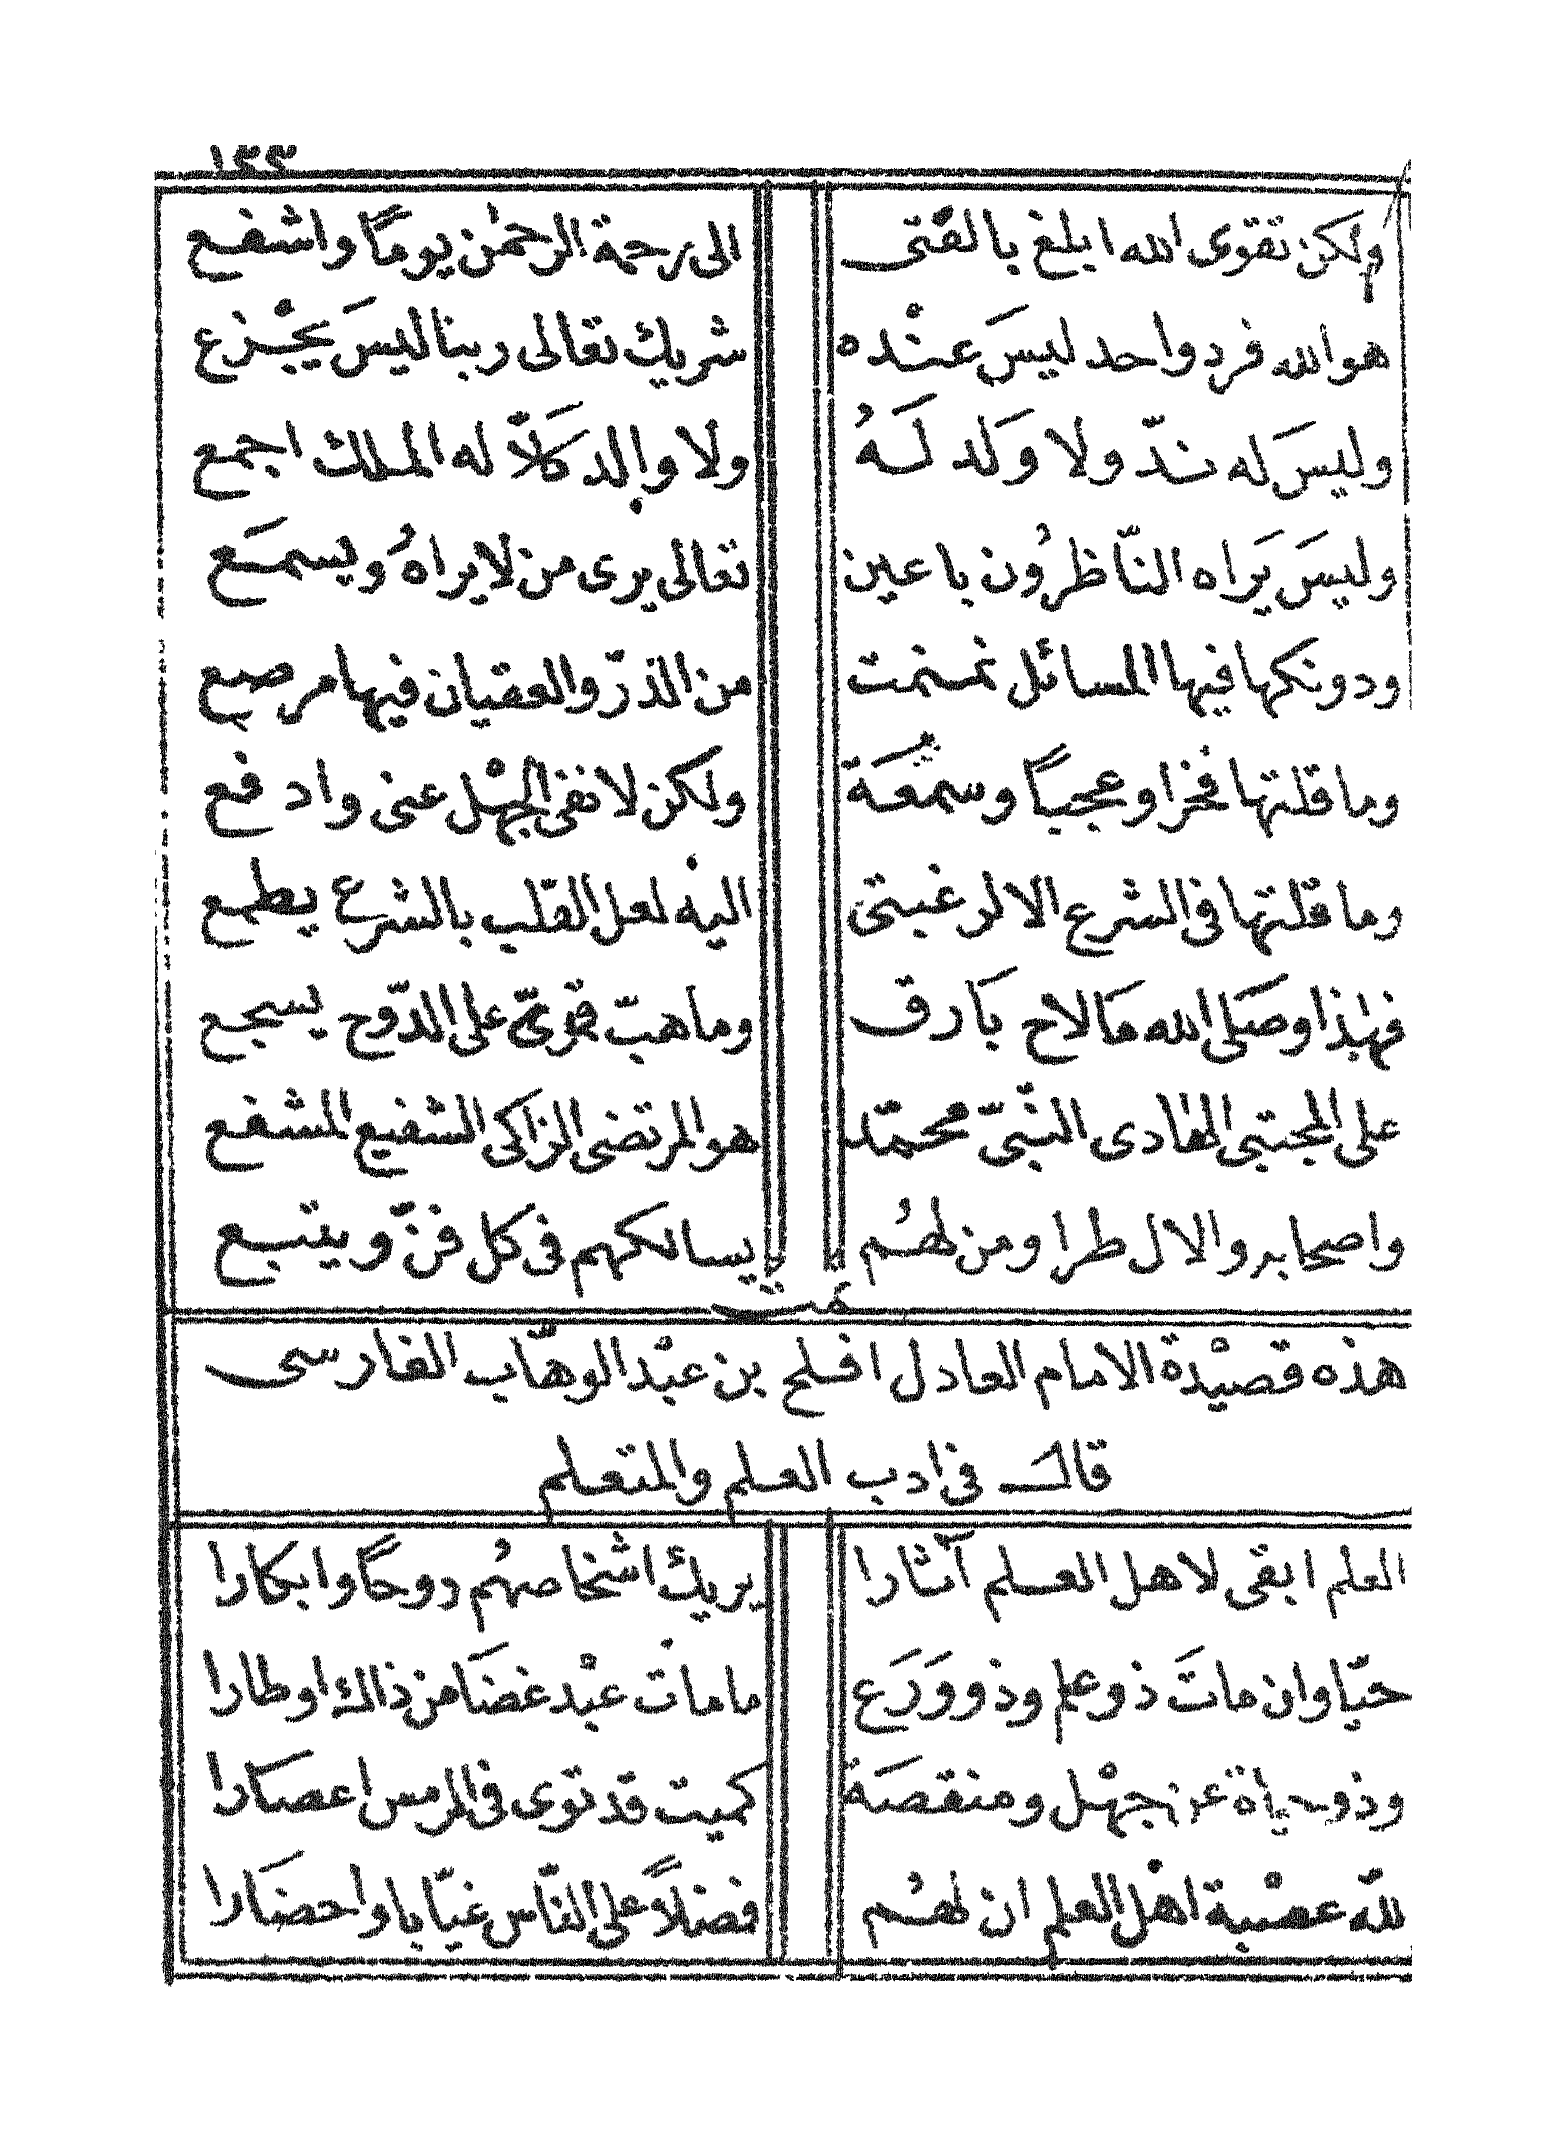 ١٣٣
ولكن تقوى الله ابلغ بالفتى الى رحمة الرحمٰن يومًا واشفع
هوالله فرد واحد ليسَ عنْده شريك تعالى ربنا ليسَ يجْزع
وليسَ له ندّ ولا وَلد لَهُ ولا والد كَلاّ له الملك اجمع
وليسَ يَراه النّاظرُون باعين تعالى يرى من لا يراهُ ويسمَع
ودونكها فيها المسائل نمنمت من الدرّ والعقيان فيها مرصع
وما قلتها فخرا وعجبًا وسمْعَة ولكن لانفى الجهْل عنى وادفع
وما قلتها فى الشرع الا لرغبتى اليه لعل القلب بالشرع يطمع
فهٰذا وصَلى الله مَا لاح بَارق وما هبّ قموىّ على الدّوح يسجع
على المجتبى الهادى النبّى محمّد هو المرتضى الزاكى الشفيع المشفع
واصحابه والال طرا ومن لهُم يسالكهم فى كل فنّ ويتبع
تمت
هذه قصيْدة الامام العادل افلح بن عبْد الوهّاب الفارسى
قال فى ادب العلم والمتعلم
العلم ابقى لاهل العلم آثارا يريك اشخاصهُم روحًا وابكارا
حيّا وان ماتَ ذو علم وذو وَرَع ما مات عبْد غضَا من ذاك اوطارا
وذو حياة عن جهْل ومنقصَة كميت قد توى فى الرمس اعصَارا
للّه عصْبة اهْل العلم ان لهُم فضلاً على النّاس غيّابا واحضَارا